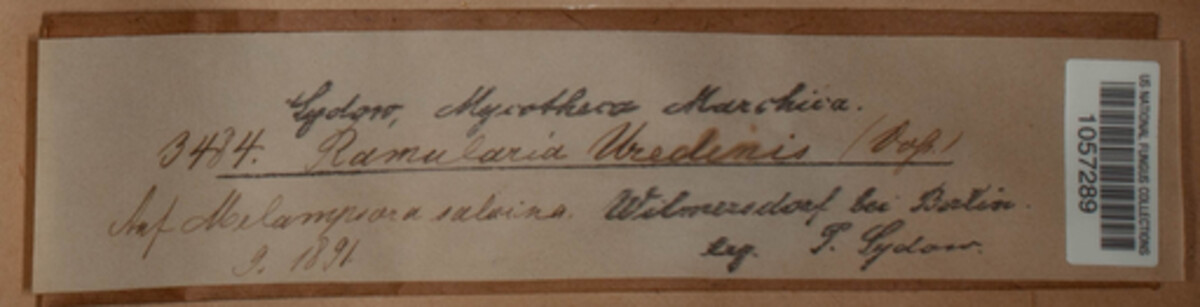 Sydow, Mycotheca Marchica.
3484. Ramularia Uredinis (Voß.)
Auf Melampsora salicina. Wilmersdorf bei Berlin.
9. 1891. leg. P. Sydow.
US NATIONAL FUNGUS COLLECTIONS
1057289